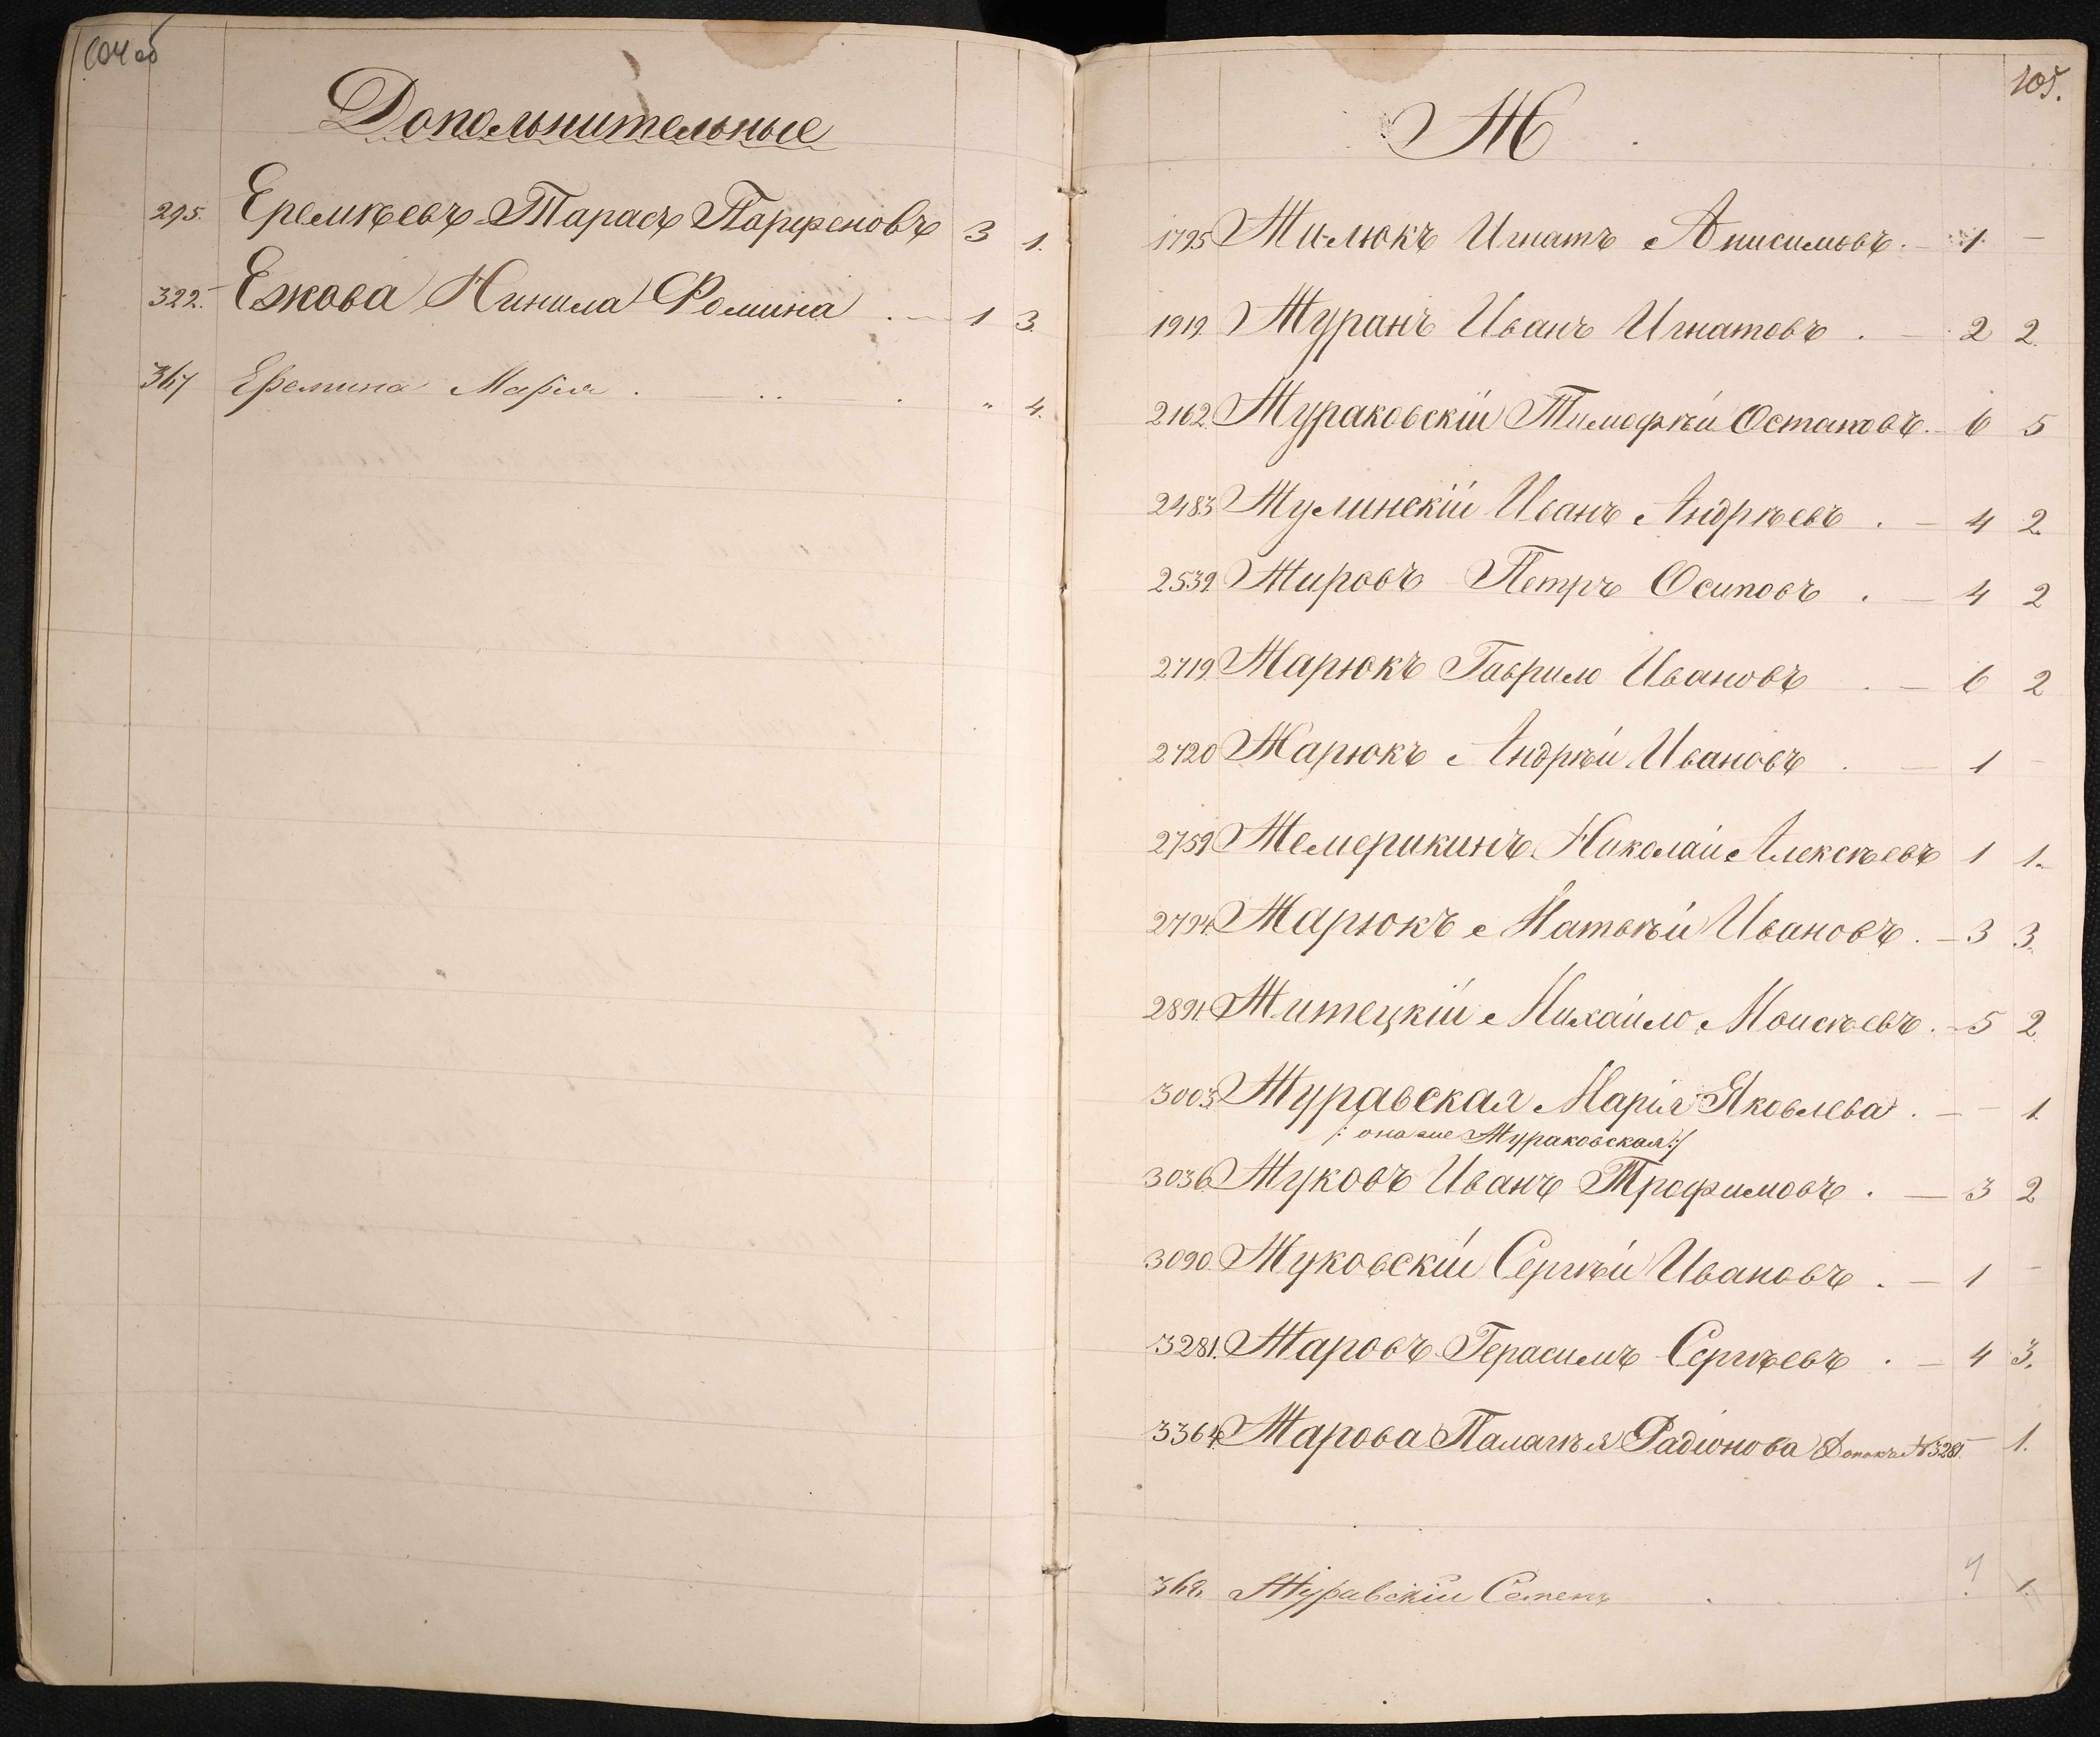 104 об
Дополнительные
295. Еремѣевъ Тарасъ Парфеновъ 3 1.
322. Ежкова Нинила Фомина . — 1 3.
367 Еремина Марія . — .. — . " 4.
105.
Ж
1795 Жилюкъ Игнатъ Анисимовъ. — 1 —
1919. Журанъ Иванъ Игнатовъ . — 2 2.
2162. Жураковскій Тимофѣй Остаповъ. — 6 5
2483 Жулинскій Иванъ Андрѣевъ . — 4 2.
2539. Жировъ Петръ Осиповъ . — 4 2
2719. Жарюкъ Гаврило Ивановъ . — 6 2
2720 Жарюкъ Андрѣй Ивановъ . — 1 —
2759 Жемерикинъ Николай Алексѣевъ 1 1.
2794. Жарюкъ Матвѣй Ивановъ . — 3 3.
2891. Житецкій Михайло Моисѣевъ . — 5 2.
3003. Журавская Марія Яковлева . — — 1.
/: она же Жураковская :/
3036. Жуковъ Иванъ Трофимовъ . — 3 2
3090. Жуковскій Сергѣй Ивановъ . — 1 —
3281. Жаровъ Герасимъ Сергѣевъ . — 4 3.
3364. Жарова Палагѣя Радіонова Доп. къ № 3281. — 1.
368. Журавскій Семенъ . ? 1.